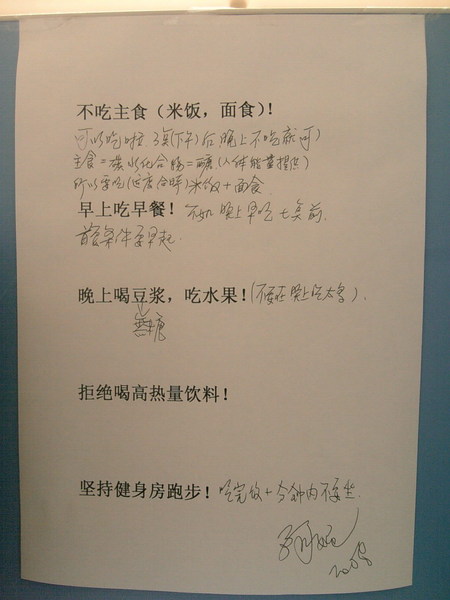 不吃主食（米饭，面食）！
可以吃啦 3点(下午)后 晚上不吃就可)
主食=碳水化合物=糖(人体能量提供)
所以要吃(适度合时)米饭+面食
早上吃早餐！不如晚上早吃 七点前.
首要条件要早起.
晚上喝豆浆，吃水果！(不要在晚上吃太多).
拒绝喝高热量饮料！
坚持健身房跑步！吃完饭十分钟内不要坐.